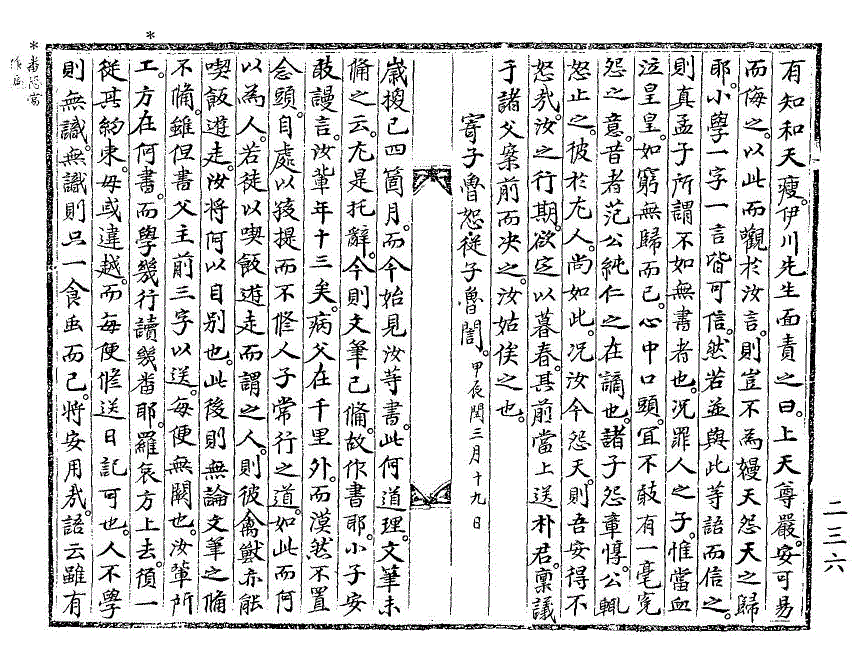 有知和天瘦。伊川先生面責之曰。上天尊嚴。安可易
而侮之。以此而觀於汝言。則豈不為嫚天怨天之歸
耶。小學一字一言皆可信。然若並與此等語而信之。
則真孟子所謂不如無書者也。况罪人之子。惟當血
泣皇皇。如窮無歸而已。心中口頭。冝不敢有一毫寃
怨之意。昔者范公純仁之在謫也。諸子怨章惇。公輒
怒止之。彼於尤人。尚如此。况汝今怨天。則吾安得不
怒㢤。汝之行期。欲定以暮春。甚前當上送朴君。稟議
于諸父案前而决之。汝姑俟之也。
寄子魯恕從子魯誾。甲辰閏三月十九日
歲換已四箇月。而今始見汝等書。此何道理。文筆未
備之云。尤是托辭。今則文筆已備。故作書耶。小子安
敢謾言。汝輩年十三矣。病父在千里外。而漠然不置
念頭。自處以孩提而不修人子常行之道。如此而何
以為人。若徒以喫飯遊走而謂之人。則彼禽獸亦能
喫飯遊走。汝將何以自别也。此後則無論文筆之備
不備。雖但書父主前三字以送。每便無闕也。汝輩所
工。方在何書。而學幾行讀幾畨耶。羅衮方上去。須一
從其約束。毋或違越。而每便修送日記可也。人不學
則無識。無識則只一食虫而已。將安用㢤。語云雖有
二三六
* 畨恐當
作遍
*